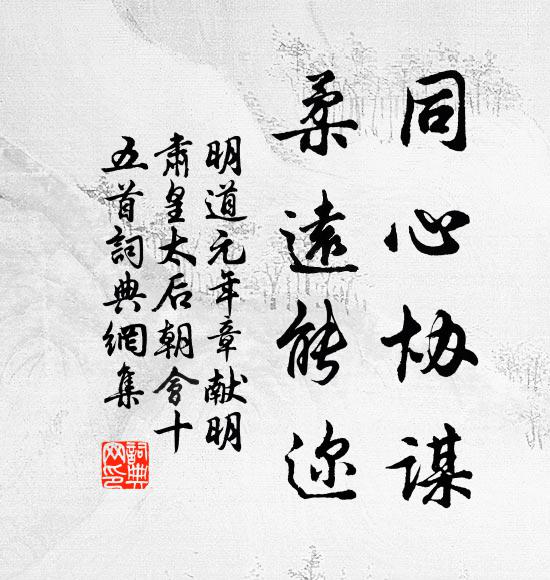 同心协谋
柔遠能迩
明道元年章献明
肃皇太后朝會十
五首詞典網集
詞典
网印